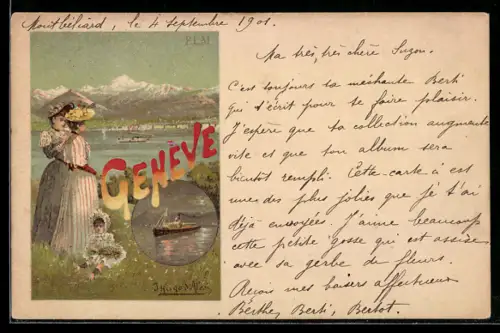 Montbéliard, le 4 Septembre 1901.
P.L.M
GENÈVE
F. Hugo d'Alési
Ma très, très chère Suzon.
C'est toujours ta méchante Berti
qui t'écrit pour te faire plaisir.
J'espère que ta collection augmente
vite et que ton album sera
bientôt rempli. Cette carte-ci est
une des plus jolies que je t'ai
déjà envoyées. J'aime beaucoup
cette petite gosse qui est assise
avec sa gerbe de fleurs.
Reçois mes baisers affectueux
Berthe, Berti, Bertot.